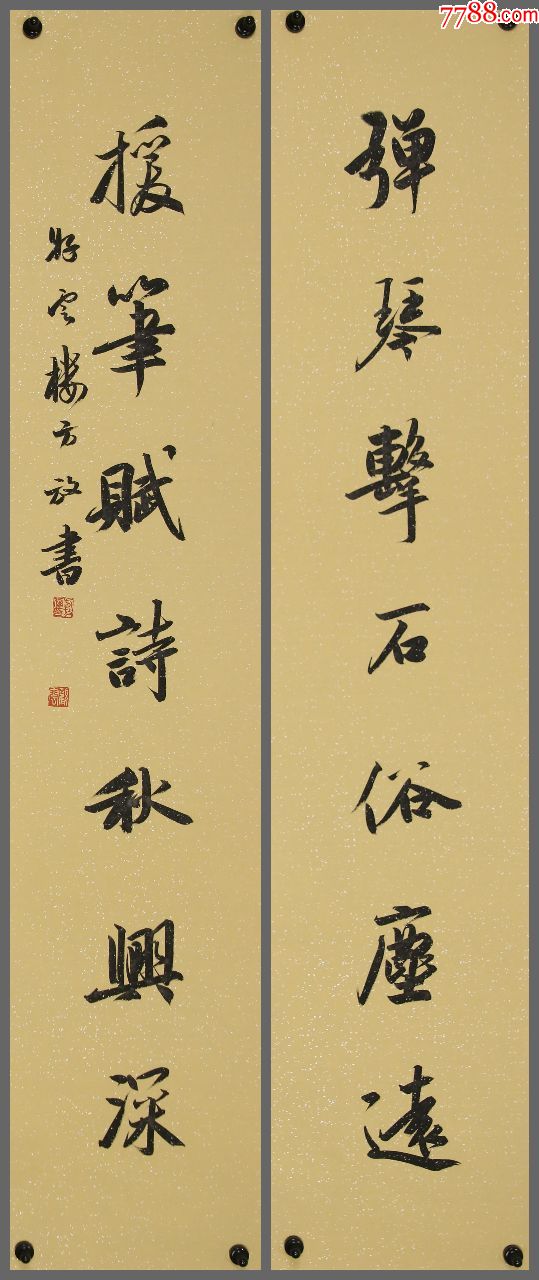 7788.com
弹琴擊石俗塵遠
援筆賦詩秋興深
好雲樓方放書